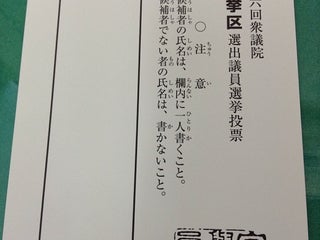 六回衆議院
挙区 選出議員選挙投票
○注意
候補者の氏名は、欄内に一人書くこと。
候補者でない者の氏名は、書かないこと。